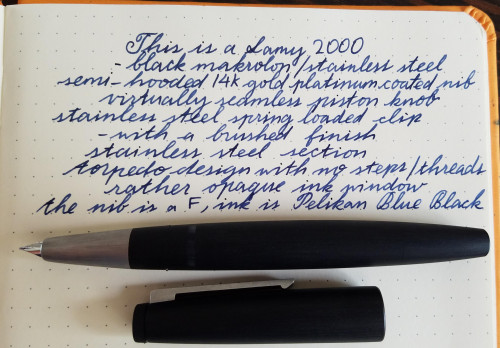 This is a Lamy 2000
- black makrolon/stainless steel
semi-hooded 14k gold platinum coated nib
virtually seamless piston knob
stainless steel spring loaded clip
- with a brushed finish
stainless steel section
torpedo design with no steps/threads
rather opaque ink window
the nib is a F, ink is Pelikan Blue Black